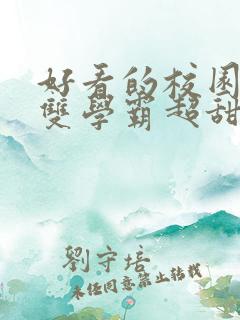 好看的校园
雙學霸超甜
劉守培
未经同意禁止转载